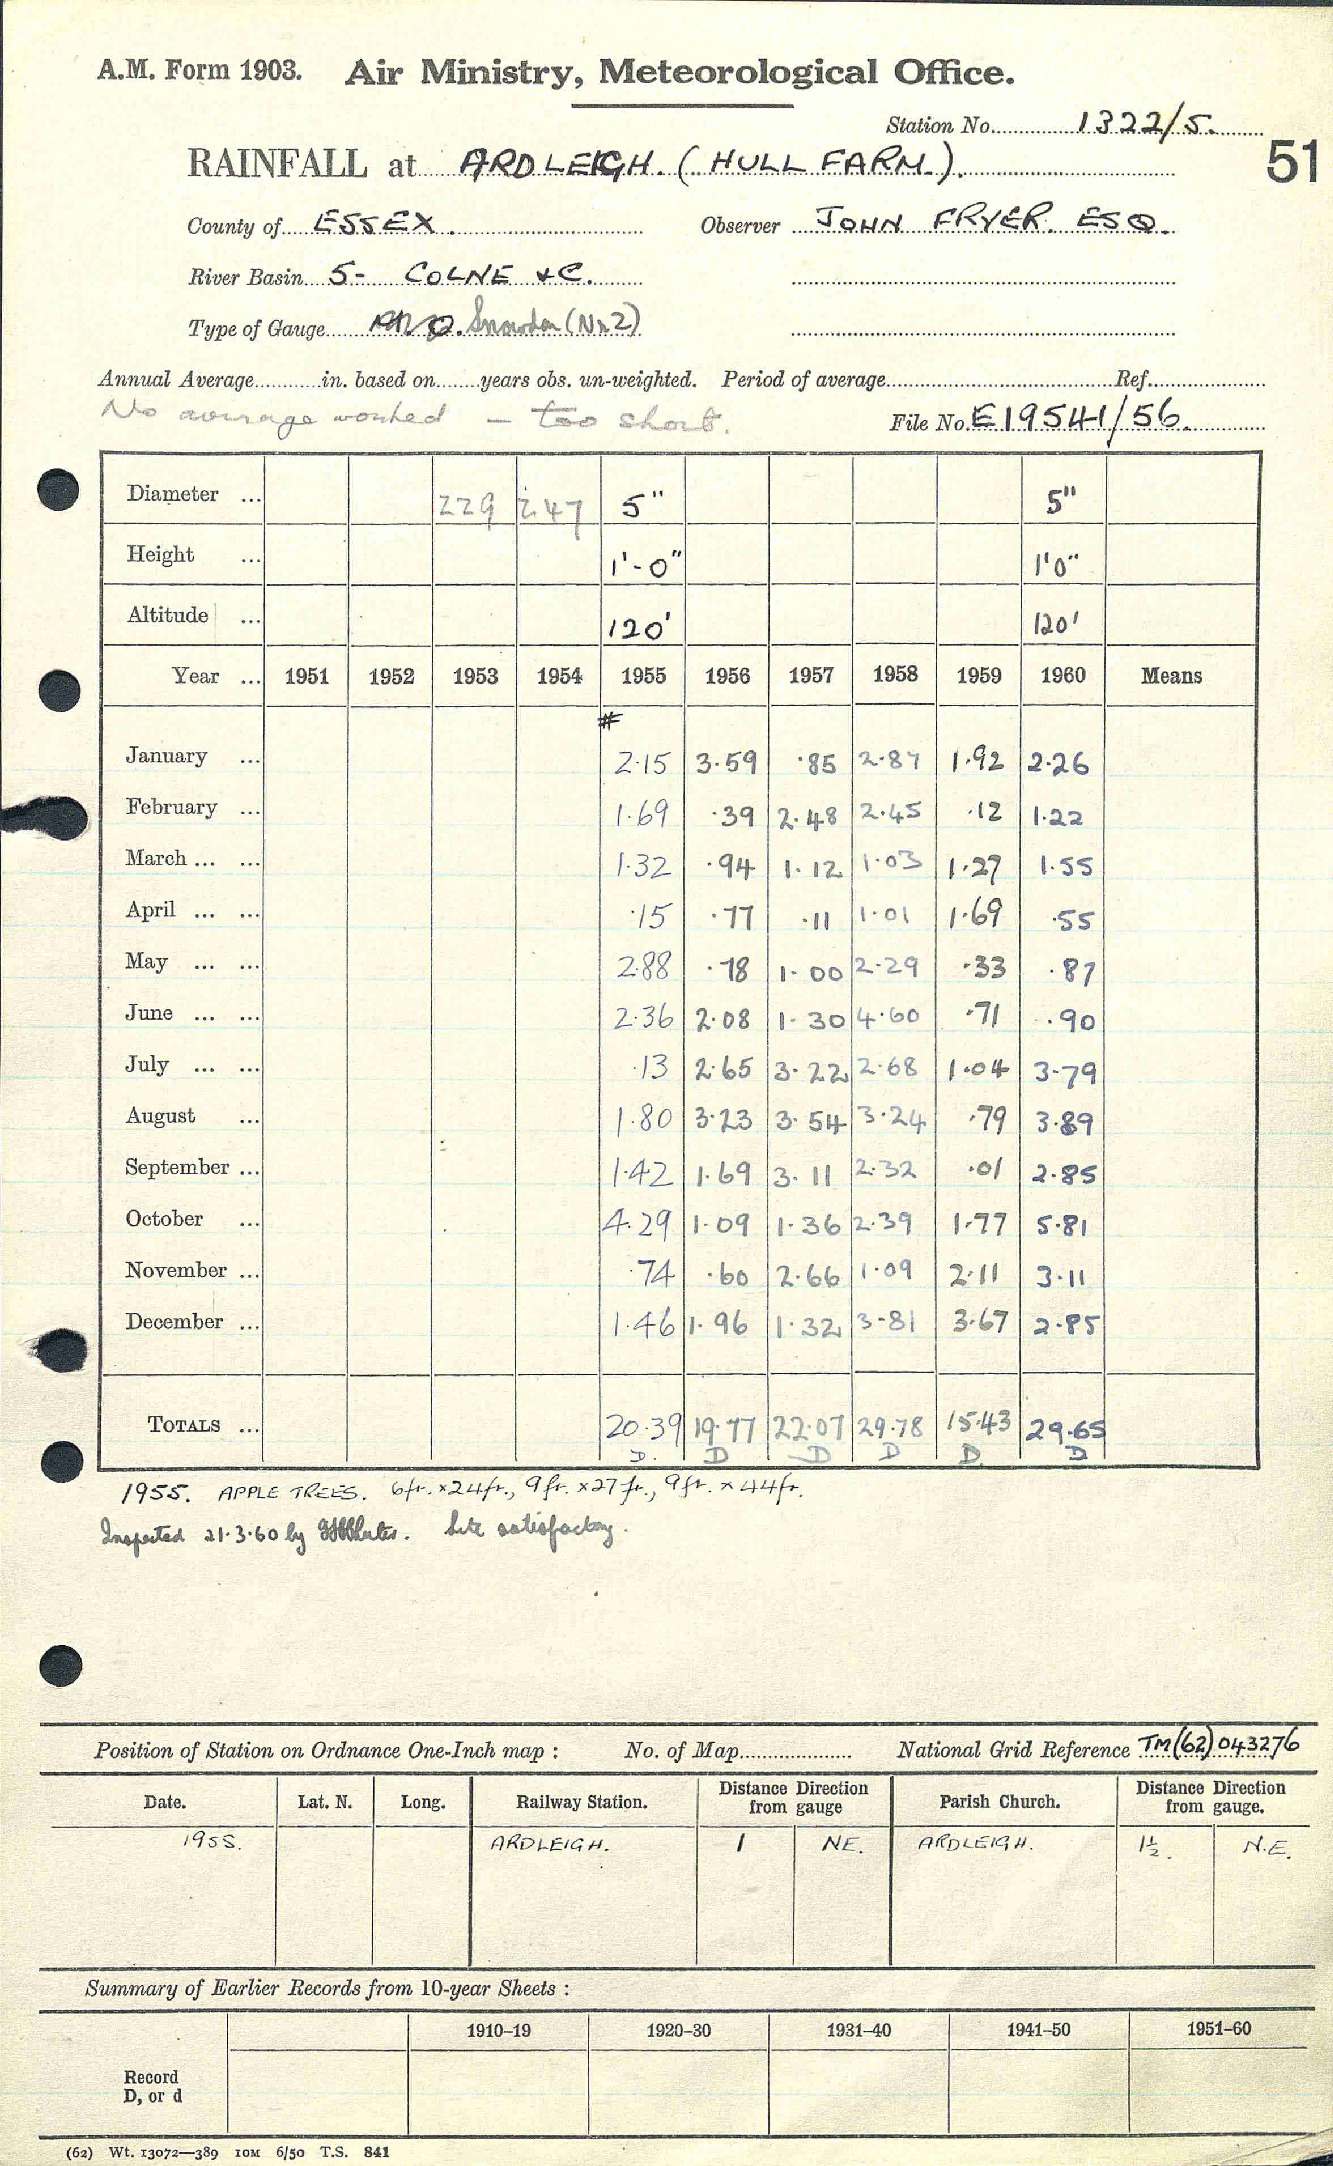 A.M. Form 1903. Air Ministry, Meteorological Office.
Station No. 1322/5.
51
RAINFALL at ARDLEIGH. (HULL FARM).
County of ESSEX. Observer JOHN FRYER. ESQ.
River Basin 5- COLNE & C.
Type of Gauge Snowdon (No 2)
Annual Average in. based on years obs. un-weighted. Period of average Ref.
No average worked - too short.
File No. E19541/56.
Diameter ... 229 247 5" 5"
Height ... 1'-0" 1'0"
Altitude ... 120' 120'
Year ... 1951 1952 1953 1954 1955 1956 1957 1958 1959 1960 Means
#
January ... 2.15 3.59 .85 2.87 1.92 2.26
February ... 1.69 .39 2.48 2.45 .12 1.22
March ... ... 1.32 .94 1.12 1.03 1.27 1.55
April ... ... .15 .77 .11 1.01 1.69 .55
May ... ... 2.88 .78 1.00 2.29 .33 .87
June ... ... 2.36 2.08 1.30 4.60 .71 .90
July ... ... .13 2.65 3.22 2.68 1.04 3.79
August ... 1.80 3.23 3.54 3.24 .79 3.89
September ... 1.42 1.69 3.11 2.32 .01 2.85
October ... 4.29 1.09 1.36 2.39 1.77 5.81
November ... .74 .60 2.66 1.09 2.11 3.11
December ... 1.46 1.96 1.32 3.81 3.67 2.85
TOTALS ... 20.39 19.77 22.07 29.78 15.43 29.65
D. D D D D. D
1955. APPLE TREES. 6ft. x 24ft., 9ft. x 27ft., 9ft. x 44ft.
Inspected 21.3.60 by Site satisfactory.
Position of Station on Ordnance One-Inch map : No. of Map National Grid Reference TM(62)043276
Date. Lat. N. Long. Railway Station. Distance from gauge Direction Parish Church. Distance from gauge. Direction
1955. ARDLEIGH. 1 NE. ARDLEIGH. 1½. N.E.
Summary of Earlier Records from 10-year Sheets :
1910-19 1920-30 1931-40 1941-50 1951-60
Record
D, or d
(62) Wt. 13072—389 10M 6/50 T.S. 841